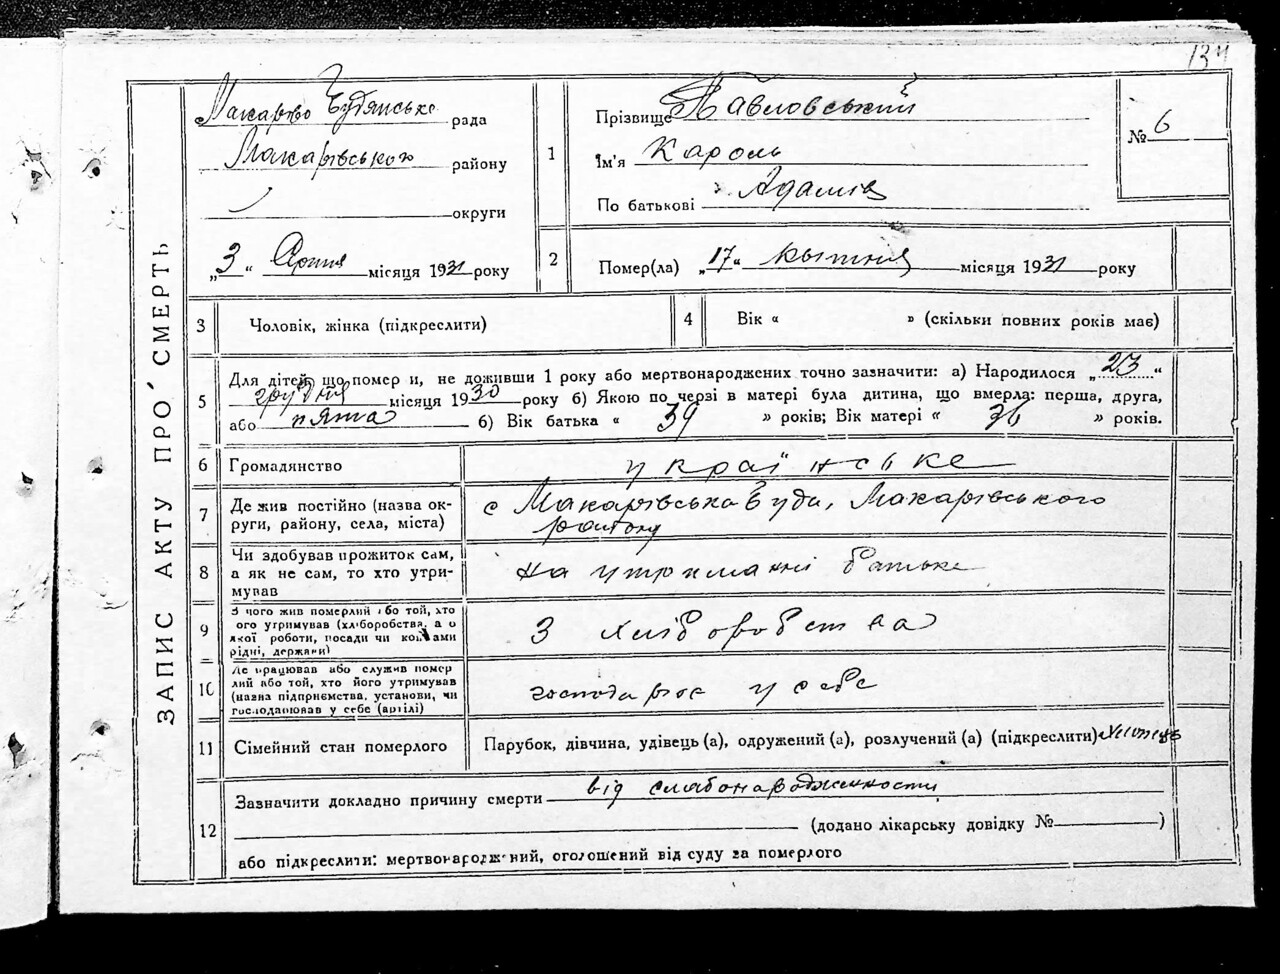 134
Макарово Будянське рада
Макарівського району
округи
„3“ місяця 1931 року
ЗАПИС АКТУ ПРО СМЕРТЬ
1
Прізвище Павловський
Ім'я Кароль
По батькові Адамів
№ 6
2
Помер(ла) „17“ квітня місяця 1931 року
3 Чоловік, жінка (підкреслити)
4 Вік « » (скільки повних років має)
5
Для дітей, що помер и, не доживши 1 року або мертвонароджених точно зазначити: а) Народилося „23“
грудня місяця 1930 року б) Якою по черзі в матері була дитина, що вмерла: перша, друга,
або п'ята б) Вік батька « 39 » років; Вік матері « » років.
6 Громадянство українське
7
Де жив постійно (назва ок-
руги, району, села, міста)
с Макарівська Буда, Макарівського
району
8
Чи здобував прожиток сам,
а як не сам, то хто утри-
мував
на утриманні батька
9
З чого жив померлий або той, хто
ого утримував (хліборобства, а о
якої роботи, посади чи коштами
рідні, держави)
З хліборобства
10
Де працював або служив помер
лий або той, хто його утримував
(назва підприємства, установи, чи
господарював у себе (артілі)
господарює у себе
11 Сімейний стан померлого
Парубок, дівчина, удівець (а), одружений (а), розлучений (а) (підкреслити) хлопець
12
Зазначити докладно причину смерти від слабонародженности
(додано лікарську довідку № )
або підкреслити: мертвонароджений, оголошений від суду за померлого